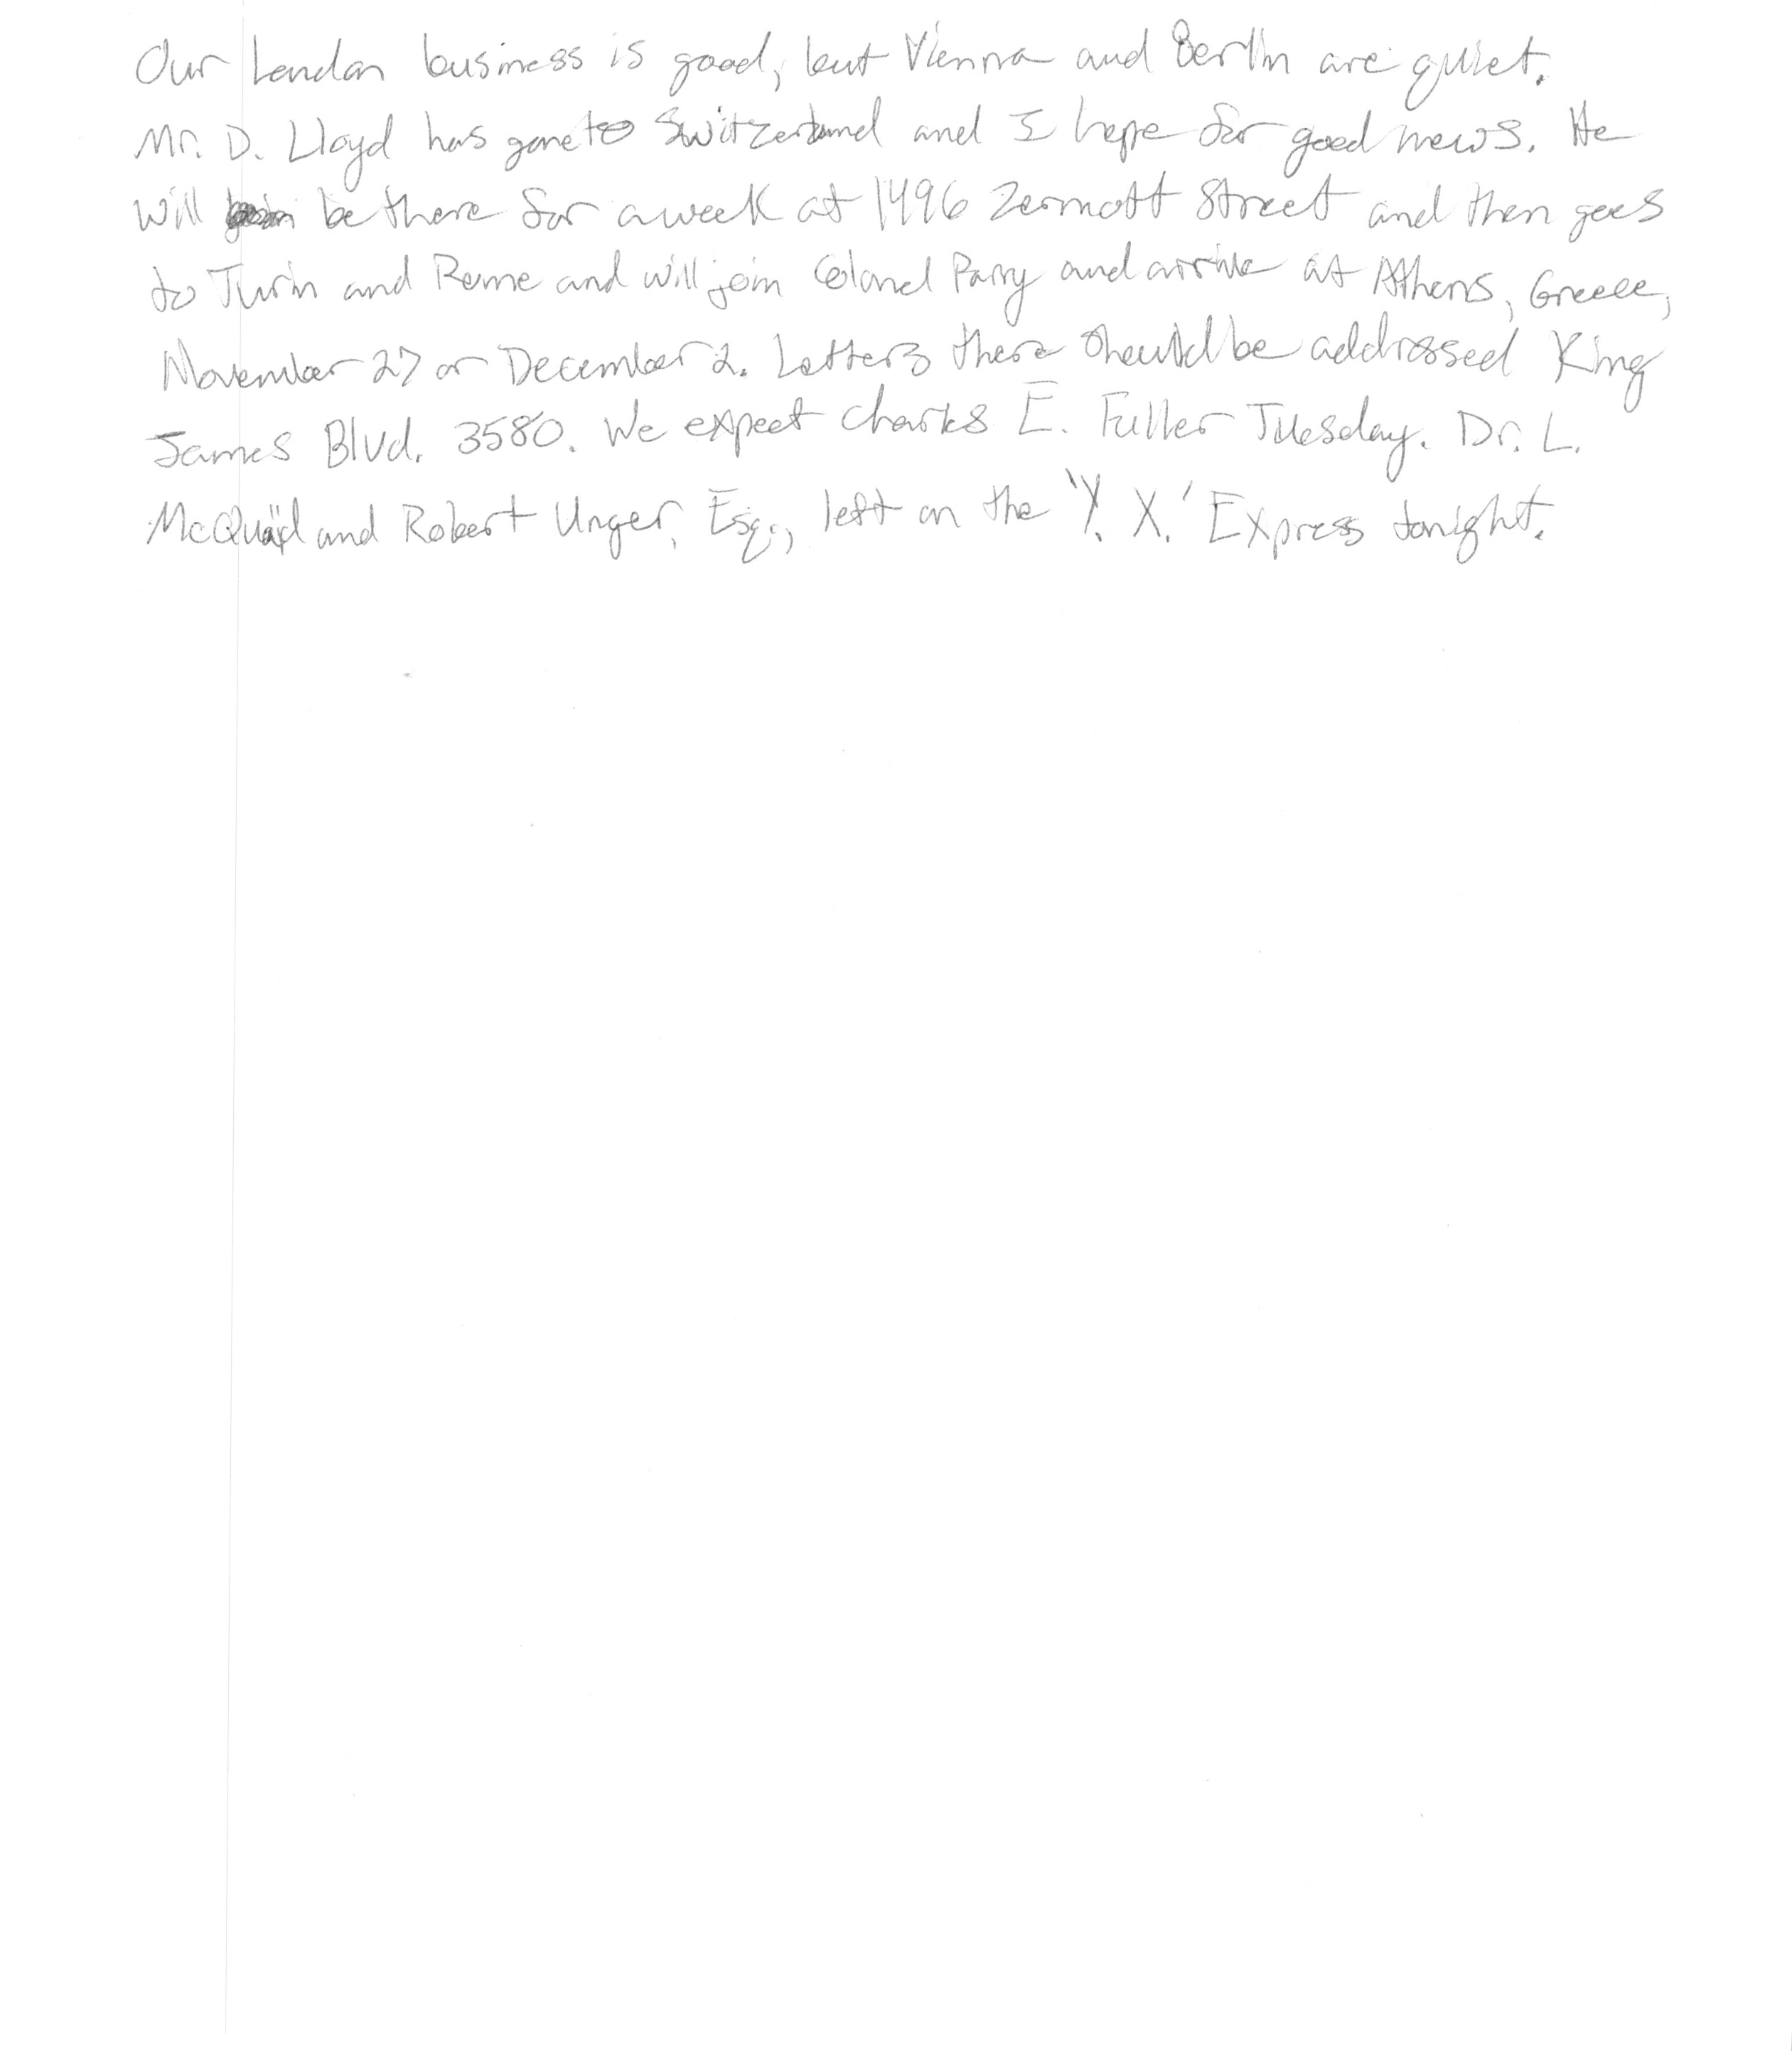 Our London business is good, but Vienna and Berlin are quiet.
Mr. D. Lloyd has gone to Switzerland and I hope for good news. He
will be there for a week at 1496 Zermott Street and then goes
to Turin and Rome and will join Colonel Parry and arrive at Athens, Greece,
November 27 or December 2. Letters there should be addressed King
James Blvd. 3580. We expect Charles E. Fuller Tuesday. Dr. L.
McQuaid and Robert Unger, Esq., left on the 'Y. X.' Express tonight.